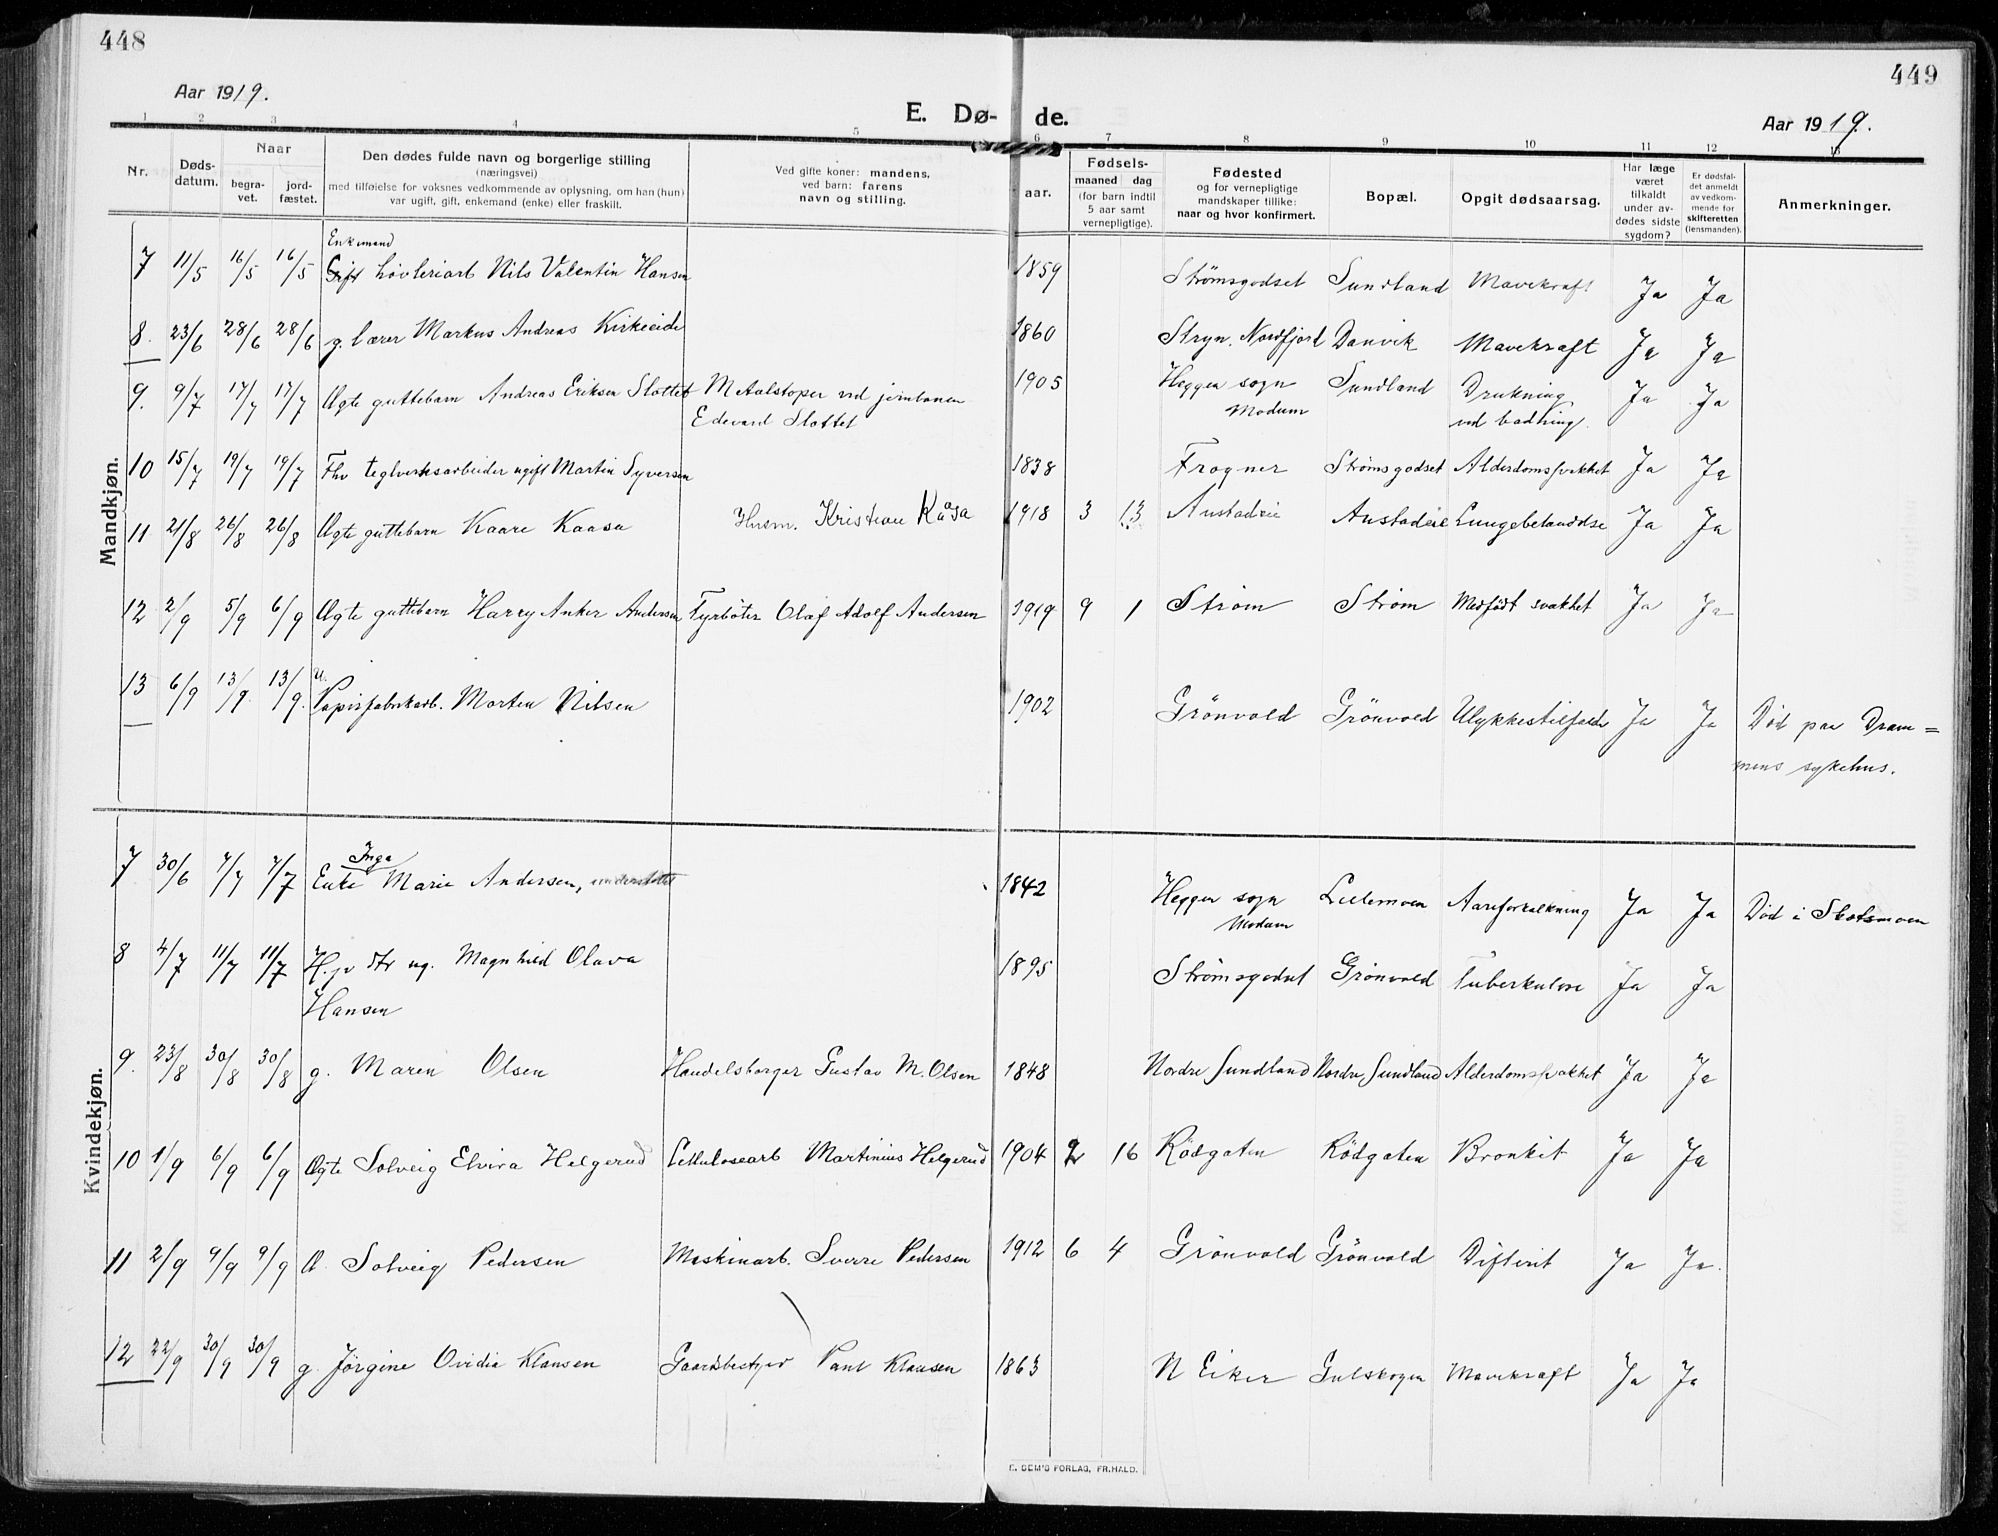 448
449
Aar 1919.
E. Dø- de.
Aar 1919.
1 2 3 4 5 6 7 8 9 10 11 12 13
Nr.
Døds-
datum.
Naar
begra-
vet.
jord-
fæstet.
Den dødes fulde navn og borgerlige stilling
(næringsvei)
med tilføielse for voksnes vedkommende av oplysning, om han (hun)
var ugift, gift, enkemand (enke) eller fraskilt.
Ved gifte koner: mandens,
ved barn: farens
navn og stilling.
aar.
Fødsels-
maaned dag
(for barn indtil
5 aar samt
vernepligtige).
Fødested
og for vernepligtige
mandskaper tillike:
naar og hvor konfirmert.
Bopæl.
Opgit dødsaarsag.
Har læge
været
tilkaldt
under av-
dødes sidste
sygdom?
Er dødsfal-
det anmeldt
av vedkom-
mende for
skifteretten
(lensmanden).
Anmerkninger.
Mandkjøn.
Enkemand
7 11/5 16/5 16/5 Gift høvleriarb Nils Valentin Hansen 1859 Strømsgodset Sundland Mavekraft Ja Ja
8. 23/6 28/6 28/6 g. Lærer Markus Andreas Kirkeeide 1860 Stryn. Nordfjord Danvik Mavekraft Ja Ja
9. 9/7 17/7 17/7 Ægte guttebarn Andreas Eriksen Slottet Metalstøper ved jernbanen 1905 Heggen sogn Sundland Drukning Ja Ja
Edevard Slottet Modum ved badning.
10 15/7 19/7 19/7 Fhv teglverksarbeider ugift Martin Syversen 1838 Frogner Strømsgodset Alderdomssvakhet Ja Ja
11 21/8 26/8 26/8 Ægte guttebarn Kaare Kaasa Husm. Kristian Kåsa 1918 3 13 Austadeie Austadeie Lungebetændelse Ja Ja
12 2/9 5/9 6/9 Ægte guttebarn Harry Anker Andersen Fyrbøter Olaf Adolf Andersen 1919 9 1 Strøm Strøm Medfødt svakhet Ja Ja
13 6/9 13/9. 13/9. U. Papirfabrikarb. Morten Nilsen 1902 Grönvold Grönvold Ulykkestilfælde Ja Ja Död paa Dram=
mens sykehus.
Kvindekjøn.
Inga
7 30/6 7/7 7/7 Enke Marie Andersen, understøttet 1842 Heggen sogn Lillemoen Aareforkalkning Ja Ja Död i Slotsmoen
Modum
8 4/7 11/7 11/7 Hjv dtr ug. Magnhild Olava 1895 Strømsgodset Grönvold Tuberkulose Ja Ja
Hansen
9. 23/8 30/8 30/8 g. Maren Olsen Handelsborger Gustav M. Olsen 1848 Nordre Sundland Nordre Sundland Alderdomssvakhet Ja Ja
10 1/9 6/9 6/9 Ægte Solveig Elvira Helgerud Cellulosearb Martinius Helgerud 1904 2 16 Rödgaten Rödgaten Bronkit Ja Ja
11 2/9 9/9 9/9 Æ. Solveig Pedersen Maskinarb. Sverre Pedersen 1912 6 4 Grönvold Grönvold Difterit Ja Ja.
12 22/9 30/9 30/9 g. Jørgine Ovidia Klausen Gaardsbestyrer Paul Klausen 1863 N Eiker Gulskogen Mavekraft Ja Ja
E. SEM'S FORLAG, FR.HALD.